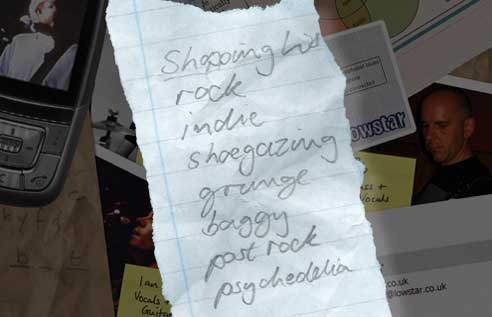 Shopping list
rock
indie
shoegazing
grunge
baggy
post rock
psychedelia
lowstar
ass +
Vocals
Ian
Vocals +
Guitar
.co.uk
@lowstar.co.uk